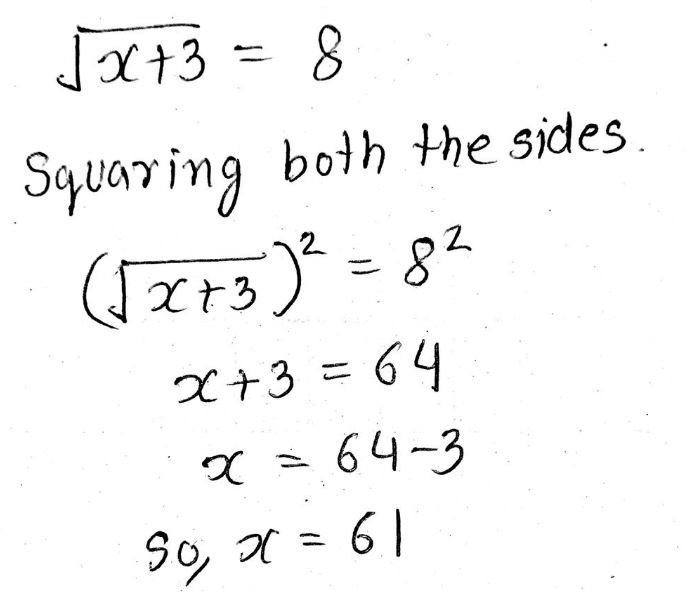 √(x+3) = 8
Squaring both the sides.
(√(x+3))² = 8²
x+3 = 64
x = 64-3
So, x = 61